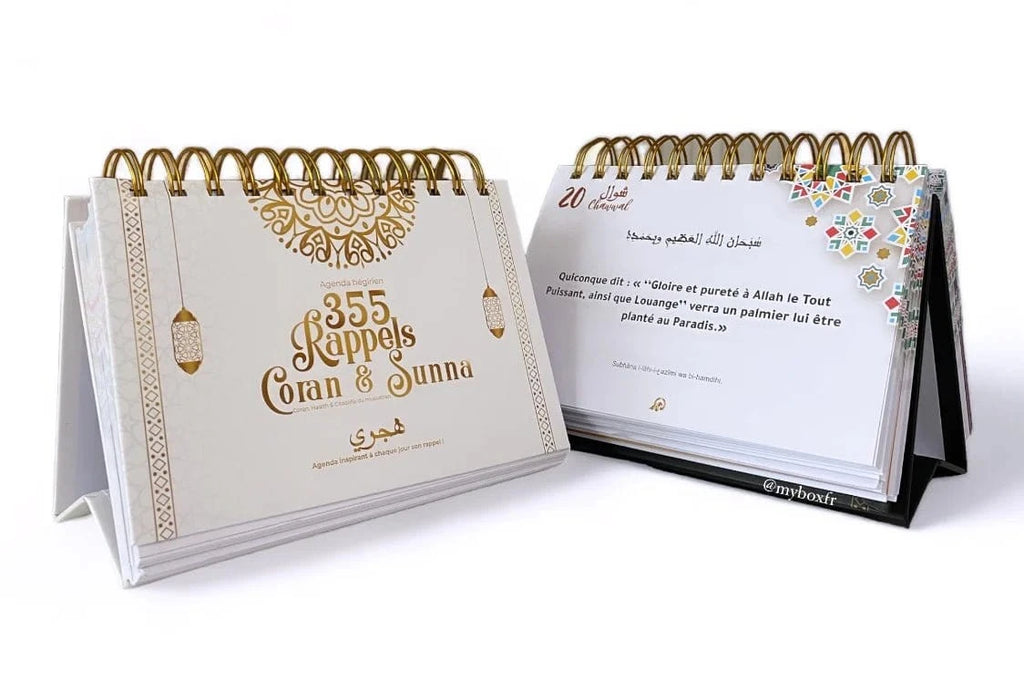 Agenda hégirien
355
Rappels
Coran & Sunna
Coran, Hadith & Citations du musulman
هجري
Agenda inspirant à chaque jour son rappel !
20 شوال
Chawwal
سُبْحَانَ اللَّهِ العَظِيمِ وَبِحَمْدِهِ
Quiconque dit : « ‘‘Gloire et pureté à Allah le Tout
Puissant, ainsi que Louange’’ verra un palmier lui être
planté au Paradis.»
Subhâna l-lâhi-l-ʿazîmi wa bi-hamdihi.
@myboxfr